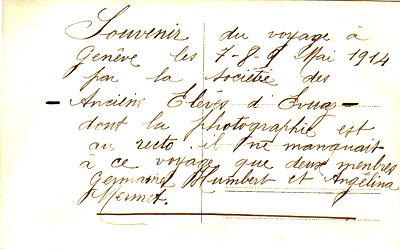 Souvenir du voyage à
Genève les 7-8-9 Mai 1914
par la société des
- Anciens Elèves d'
dont la photographie est
au recto. il ne manquait
à ce voyage que deux menbres
Germaine Humbert et Angélina
Mermet.